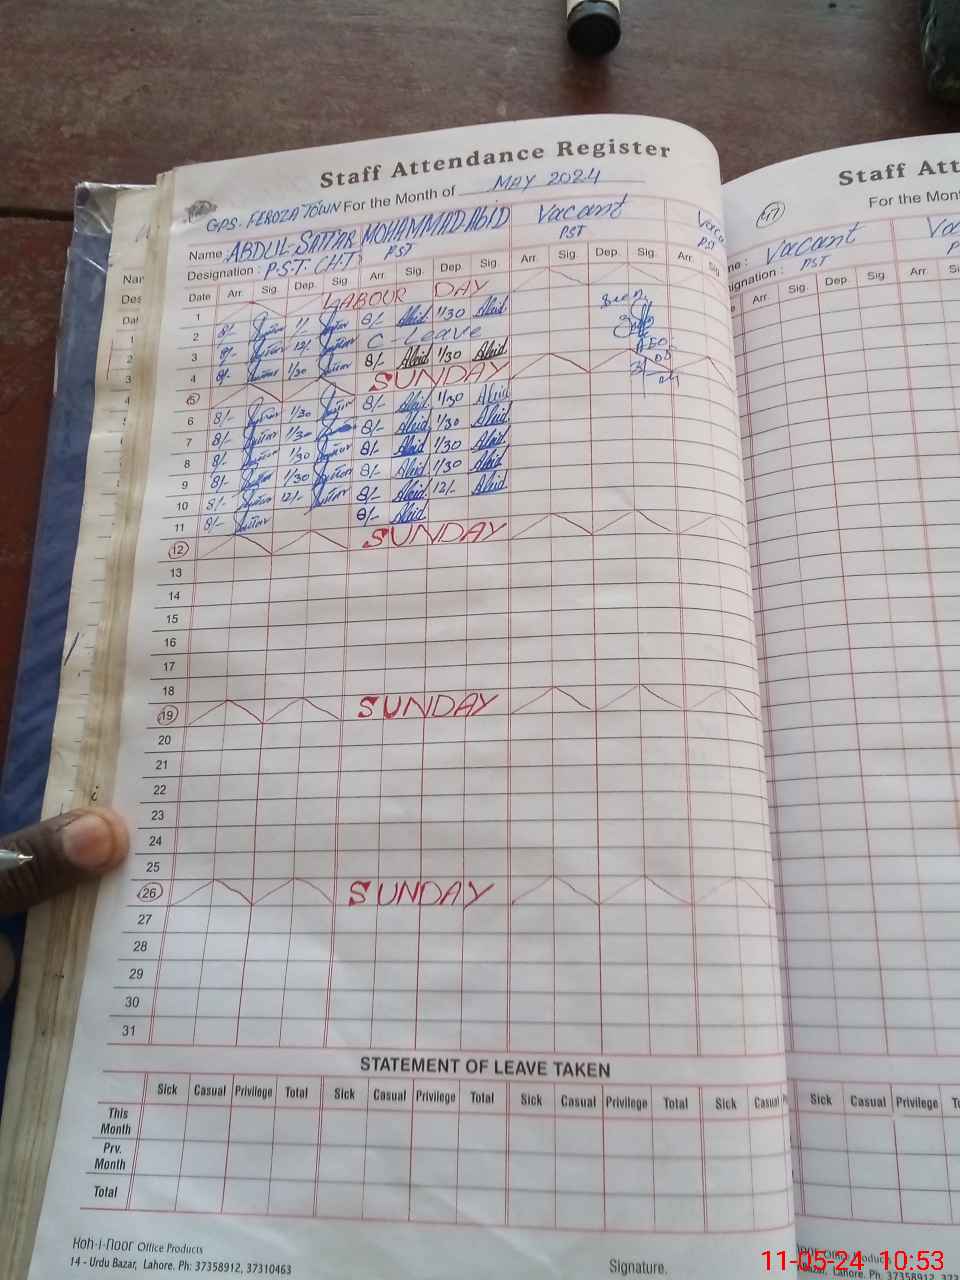 Staff Attendance Register
GPS. FEROZA TOWN For the Month of MAY 2024
Name ABDUL-SATTAR MOHAMMAD Abid Vacant
Designation : P.S.T. CHT) PST PST
Date Arr. Sig. Dep. Sig. Arr. Sig. Dep. Sig. Arr. Sig. Dep. Sig. Arr. Sig.
1 LABOUR DAY
2 8/- 8/- Abid 1/30 Abid
3 8/- 12/- C-Leave
4 8/- 1/30 8/- Abid 1/30 Abid
5 SUNDAY
6 8/- 1/30 8/- Abid 1/30 Abid
7 8/- 1/30 8/- Abid 1/30 Abid
8 8/- 1/30 8/- Abid 1/30 Abid
9 8/- 1/30 8/- Abid 1/30 Abid
10 8/- 12/- 8/- Abid 12/- Abid
11 8/- 8/- Abid
12 SUNDAY
13
14
15
16
17
18
19 SUNDAY
20
21
22
23
24
25
26 SUNDAY
27
28
29
30
31
Seen
AEO
STATEMENT OF LEAVE TAKEN
Sick Casual Privilege Total Sick Casual Privilege Total Sick Casual Privilege Total Sick Casual
This Month
Prv. Month
Total
Koh-i-noor Office Products
14 - Urdu Bazar, Lahore. Ph: 37358912, 37310463
Signature.
Staff Att
For the Mont
Vacant
PST
Arr. Sig. Dep. Sig. Arr.
Sick Casual Privilege
Office Products
Bazar, Lahore. Ph: 37358912, 3731
11-05-24 10:53